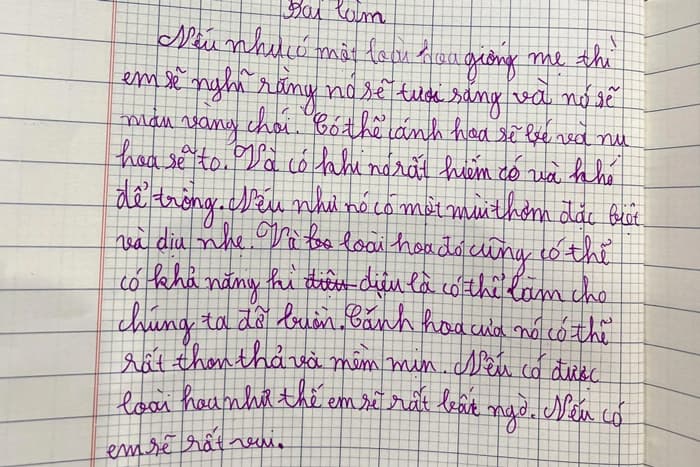 Bài làm
Nếu như có một loài hoa giống mẹ thì
em sẽ nghĩ rằng nó sẽ tươi sáng và nó sẽ
màu vàng chói. Có thể cánh hoa sẽ bé và nụ
hoa sẽ to. Và có khi nó rất hiếm có và khó
để trồng. Nếu như nó có một mùi thơm đặc biệt
và dịu nhẹ. Và loài hoa đó cũng có thể
có khả năng kì diệu là có thể làm cho
chúng ta đỡ buồn. Cánh hoa của nó có thể
rất thon thả và mềm mịn. Nếu có được
loài hoa như thế em sẽ rất bất ngờ. Nếu có
em sẽ rất vui.